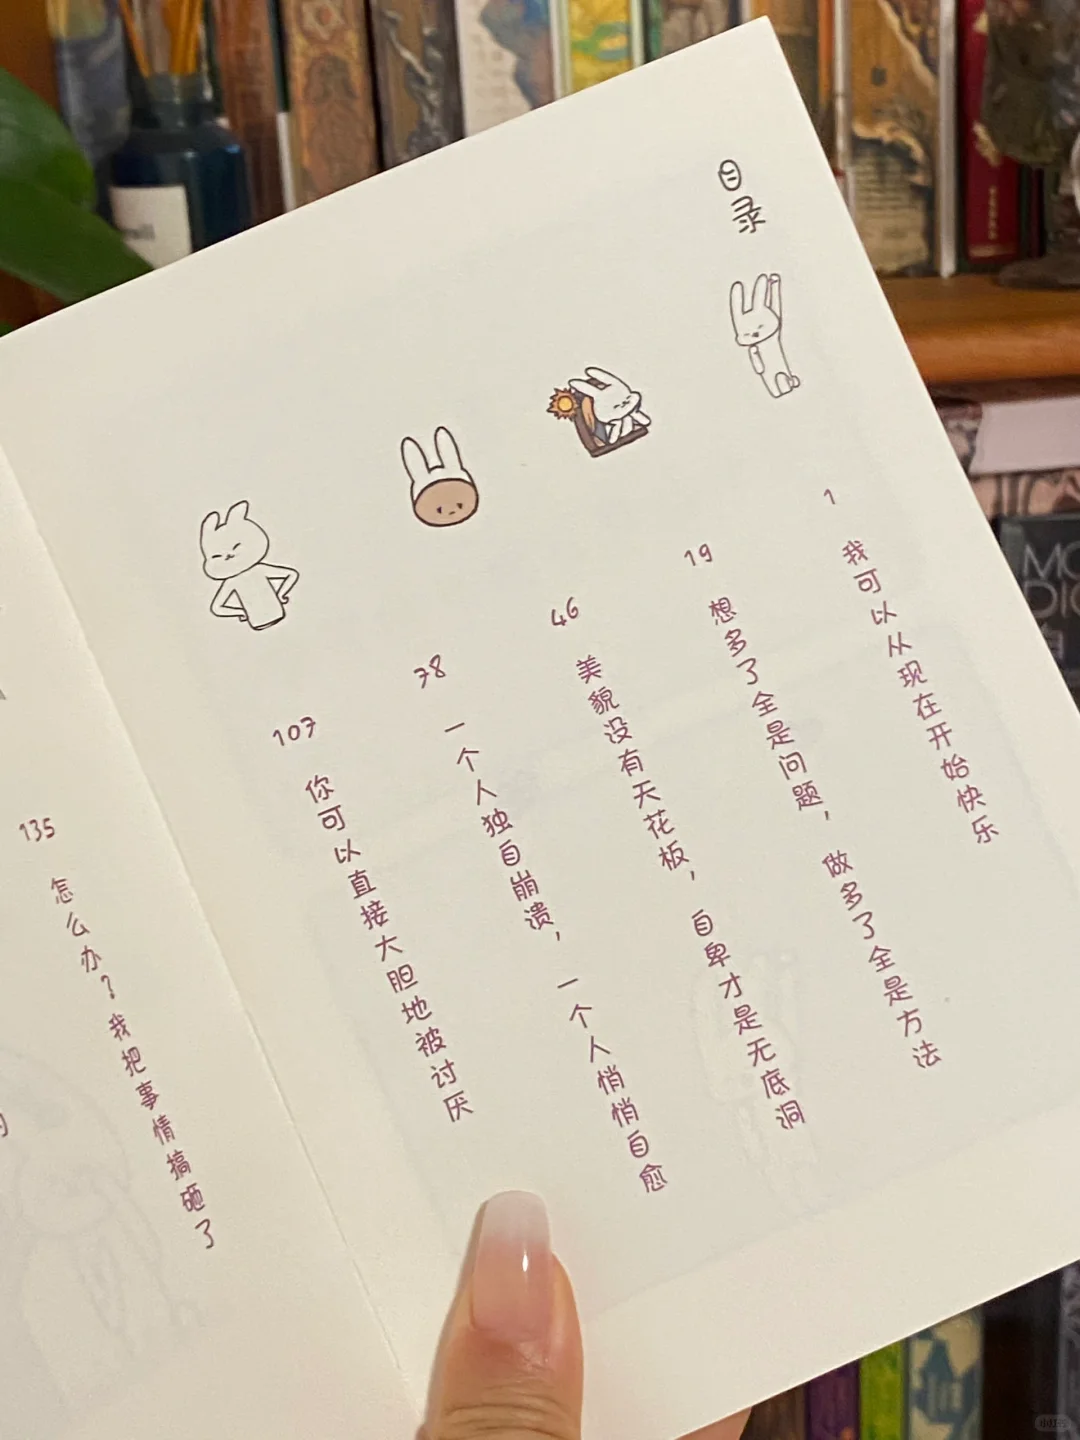 目录
1 我可以从现在开始快乐
19 想多了全是问题，做多了全是方法
46 美貌没有天花板，自卑才是无底洞
78 一个人独自崩溃，一个人悄悄自愈
107 你可以直接大胆地被讨厌
135 怎么办？我把事情搞砸了